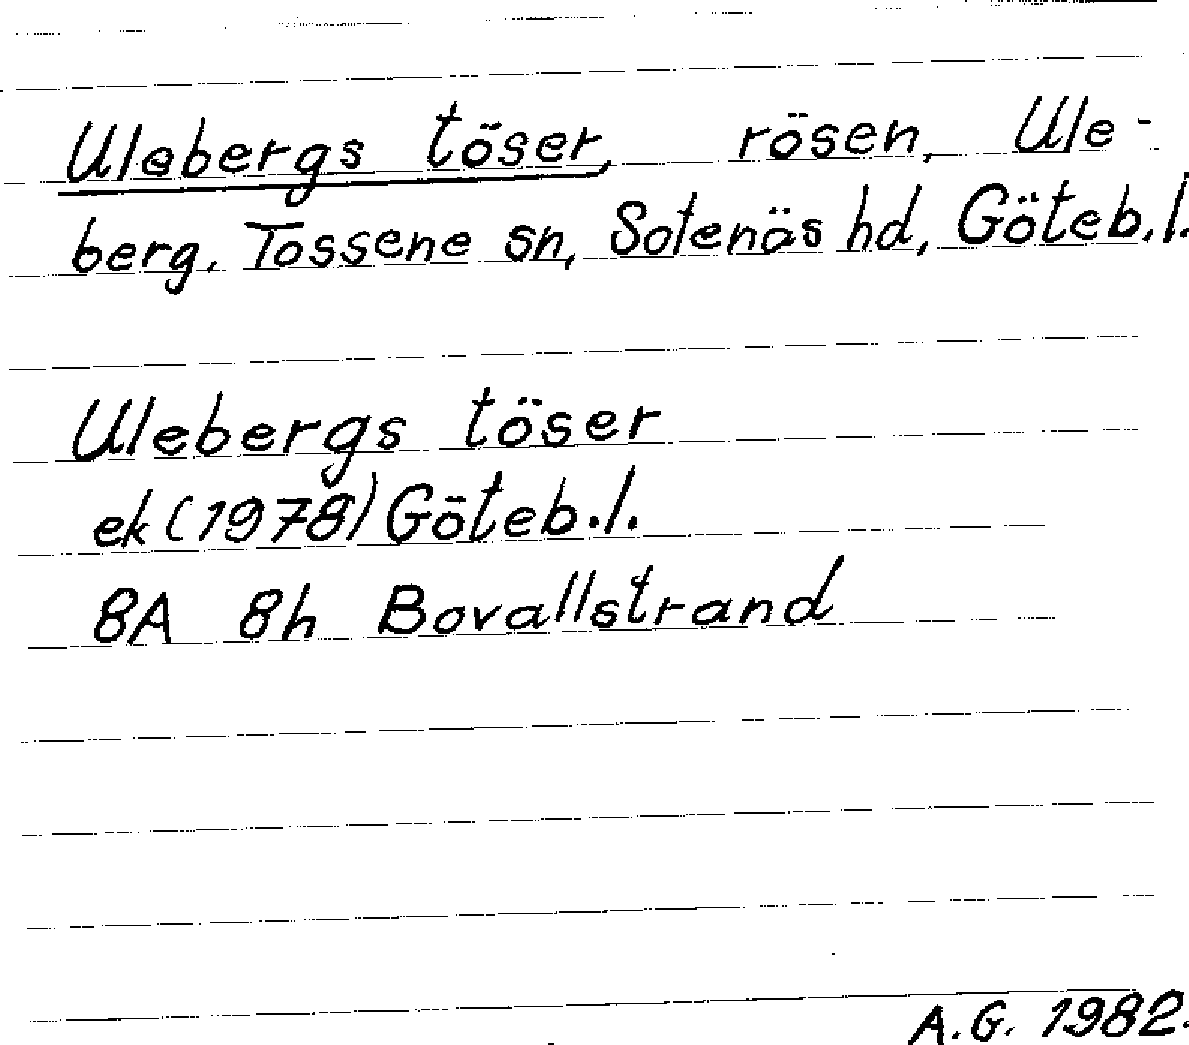 Ulebergs töser, rösen, Ule-
berg, Tossene sn, Sotenäs hd, Göteb.l.
Ulebergs töser
ek (1978) Göteb.l.
8A 8h Bovallstrand
A.G. 1982.